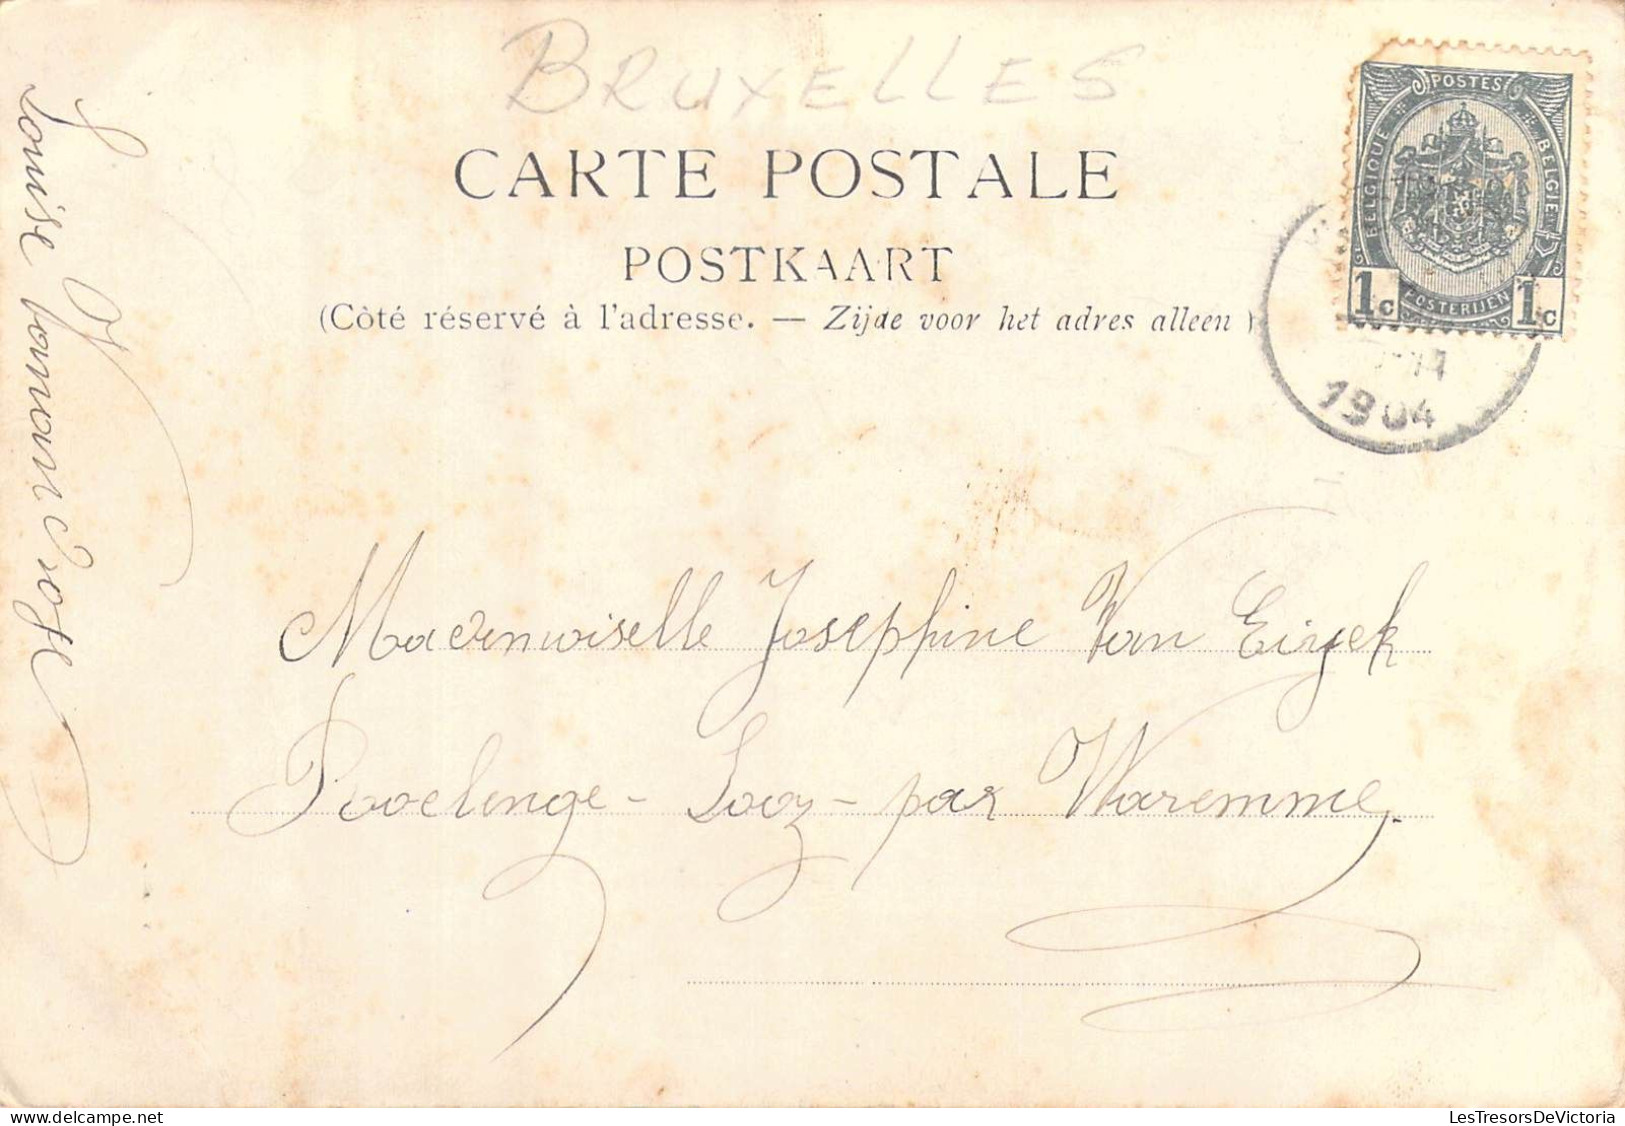 BRUXELLES
CARTE POSTALE
POSTKAART
(Côté réservé à l'adresse. — Zijde voor het adres alleen)
POSTES
BELGIQUE
BELGIË
POSTERIJEN
1c 1c
1904
Louise
Mademoiselle Josephine Van Eiyck
Rovelenge - Looz - par Waremme.
LesTresorsDeVictoria